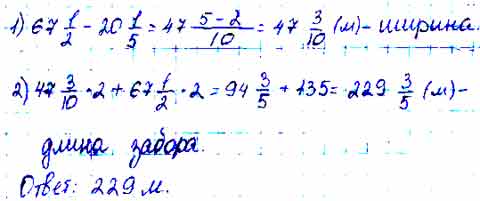 1) 67 1/2 - 20 1/5 = 47 (5-2)/10 = 47 3/10 (м) - ширина.
2) 47 3/10 · 2 + 67 1/2 · 2 = 94 3/5 + 135 = 229 3/5 (м) -
длина забора.
Ответ: 229 м.